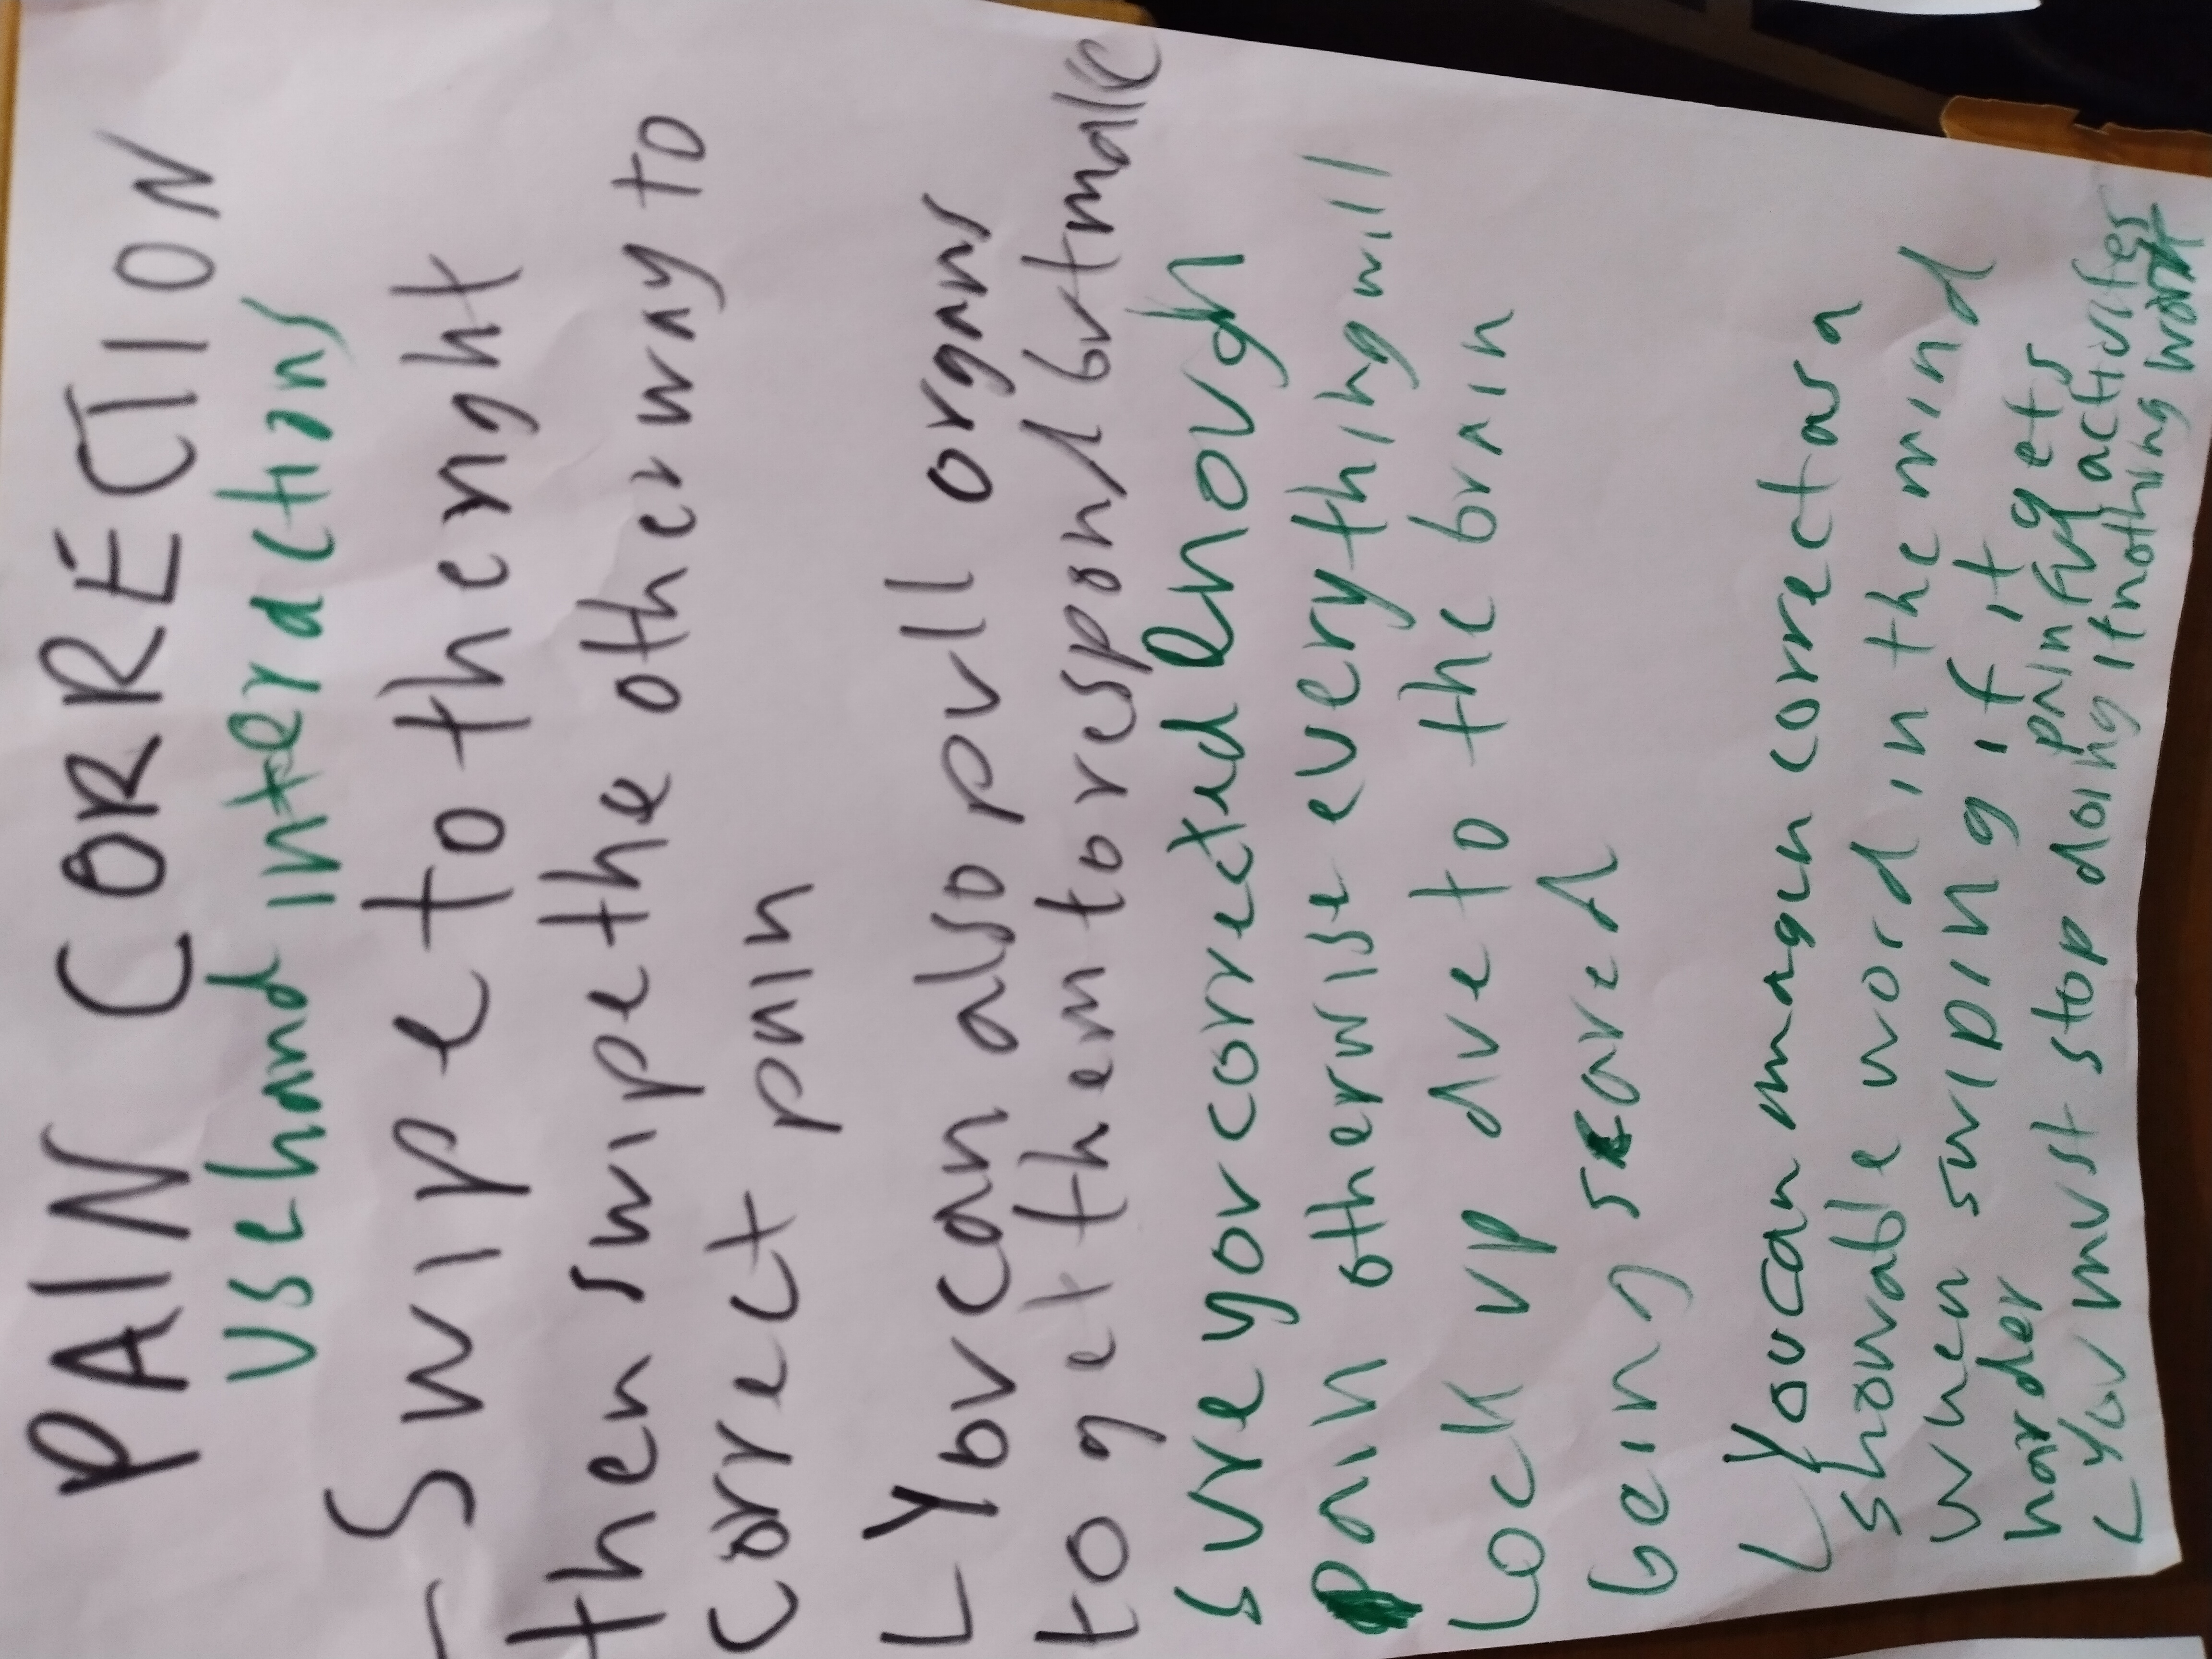 PAIN CORRECTION
Use hand interactions
- Swipe to the right
then swipe the other way to
correct pain
L You can also pull organs
to get them to respond, but make
sure you corrected enough
pain otherwise everything will
lock up due to the brain
being scared
L You can imagen correct as a
showable word in the mind
when swiping if it gets
harder painful activites
L You must stop doing it nothing work